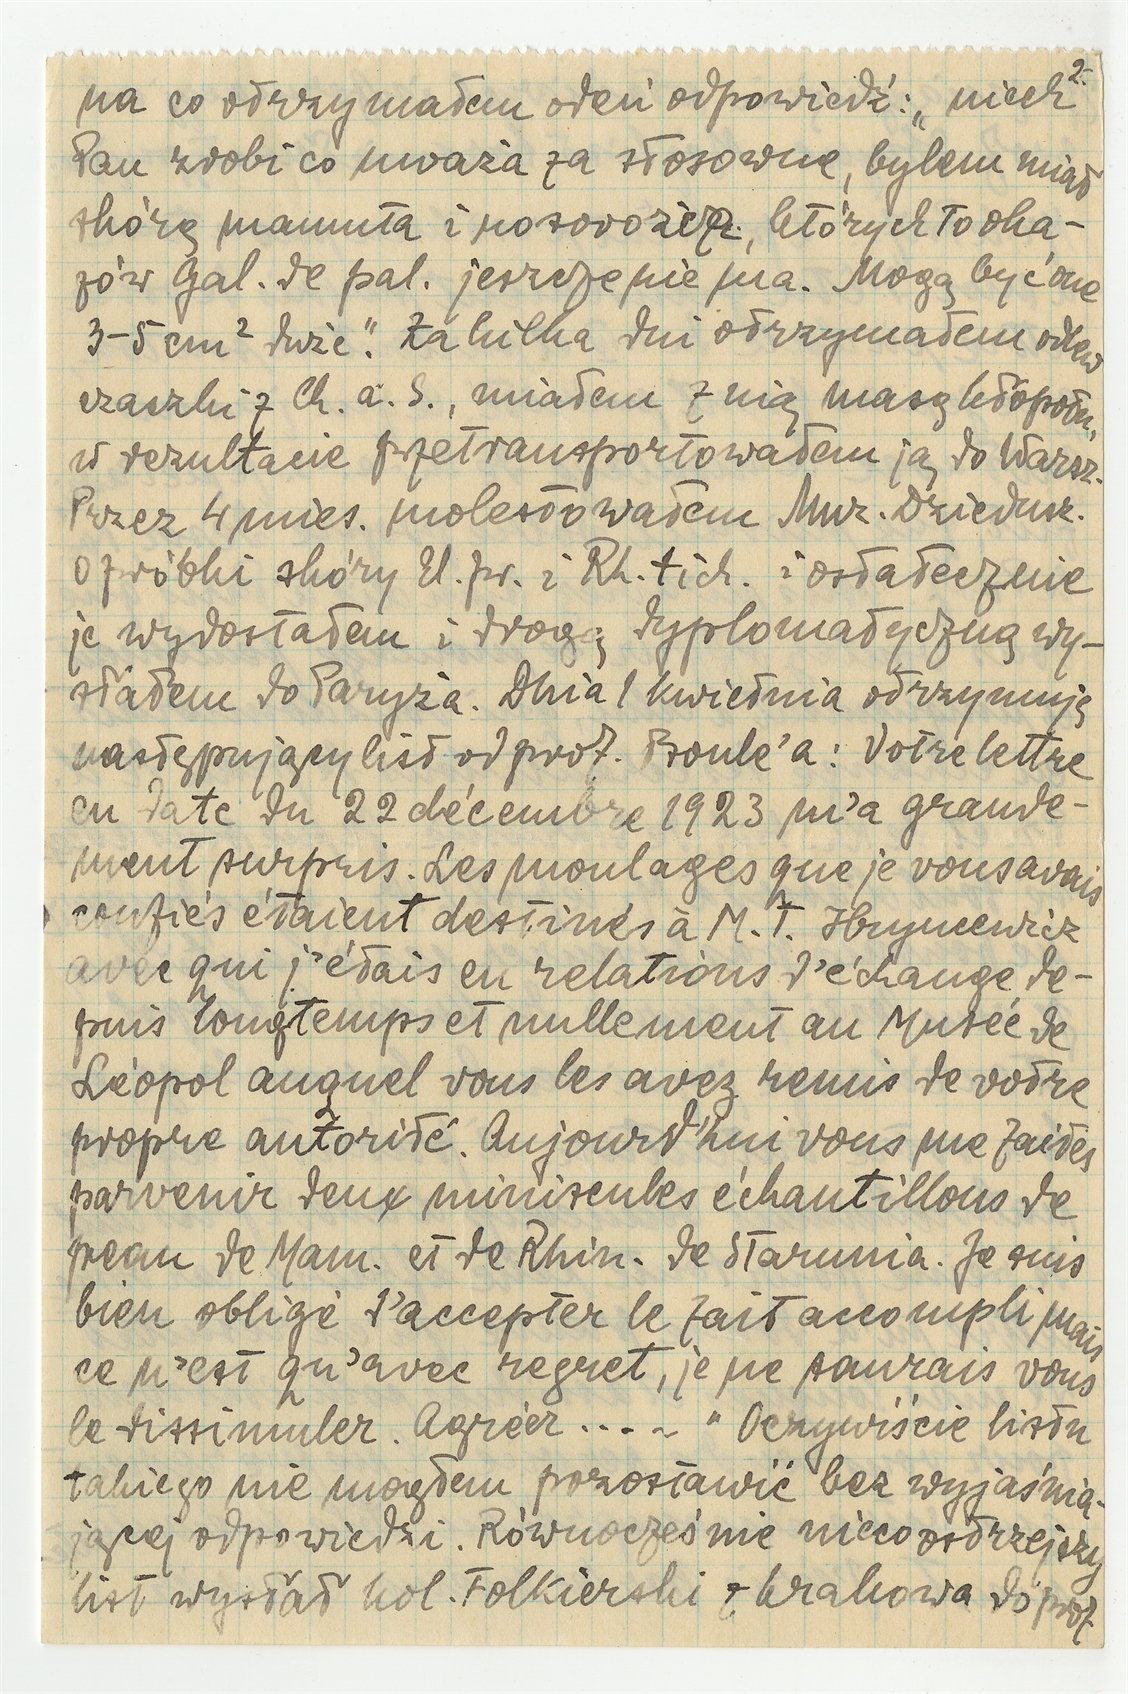 2.
na co otrzymałem odeń odpowiedź: „niech
Pan zrobi co uważa za stosowne, bylem miał
skórę mamuta i nosorożca, których to oka-
zów Gal. de pal. jeszcze nie ma. Mogą być one
3-5 cm² duże". Za kilka dni otrzymałem odlew
czaszki z Ch. a. S., miałem z nią masę kłopotu,
w rezultacie przetransportowałem ją do Warsz.
Przez 4 mies. molestowałem Muz. Dziedusz.
o próbki skóry El. pr. i Rh. tich. i ostatecznie
je wydostałem i drogą dyplomatyczną wy-
słałem do Paryża. Dnia 1 kwietnia otrzymuję
następujący list od prof. Boule'a: Votre lettre
en date du 22 décembre 1923 m'a grande-
ment surpris. Les moulages que je vous avais
confiés étaient destinés à M. T. Hryncewicz
avec qui j'étais en relations d'échange de-
puis longtemps et nullement au Musée de
Léopol auquel vous les avez remis de votre
propre autorité. Aujourd'hui vous me faites
parvenir deux miniscules échantillons de
peau de Mam. et de Rhin. de Starunia. Je suis
bien obligé d'accepter le fait accompli mais
ce n'est qu'avec regret, je ne saurais vous
le dissimuler. Agréer .... " Oczywiście listu
takiego nie mogłem pozostawić bez wyjaśnia-
jącej odpowiedzi. Równocześnie nieco ostrzejszy
list wysłał kol. Folkierski z Krakowa do prof